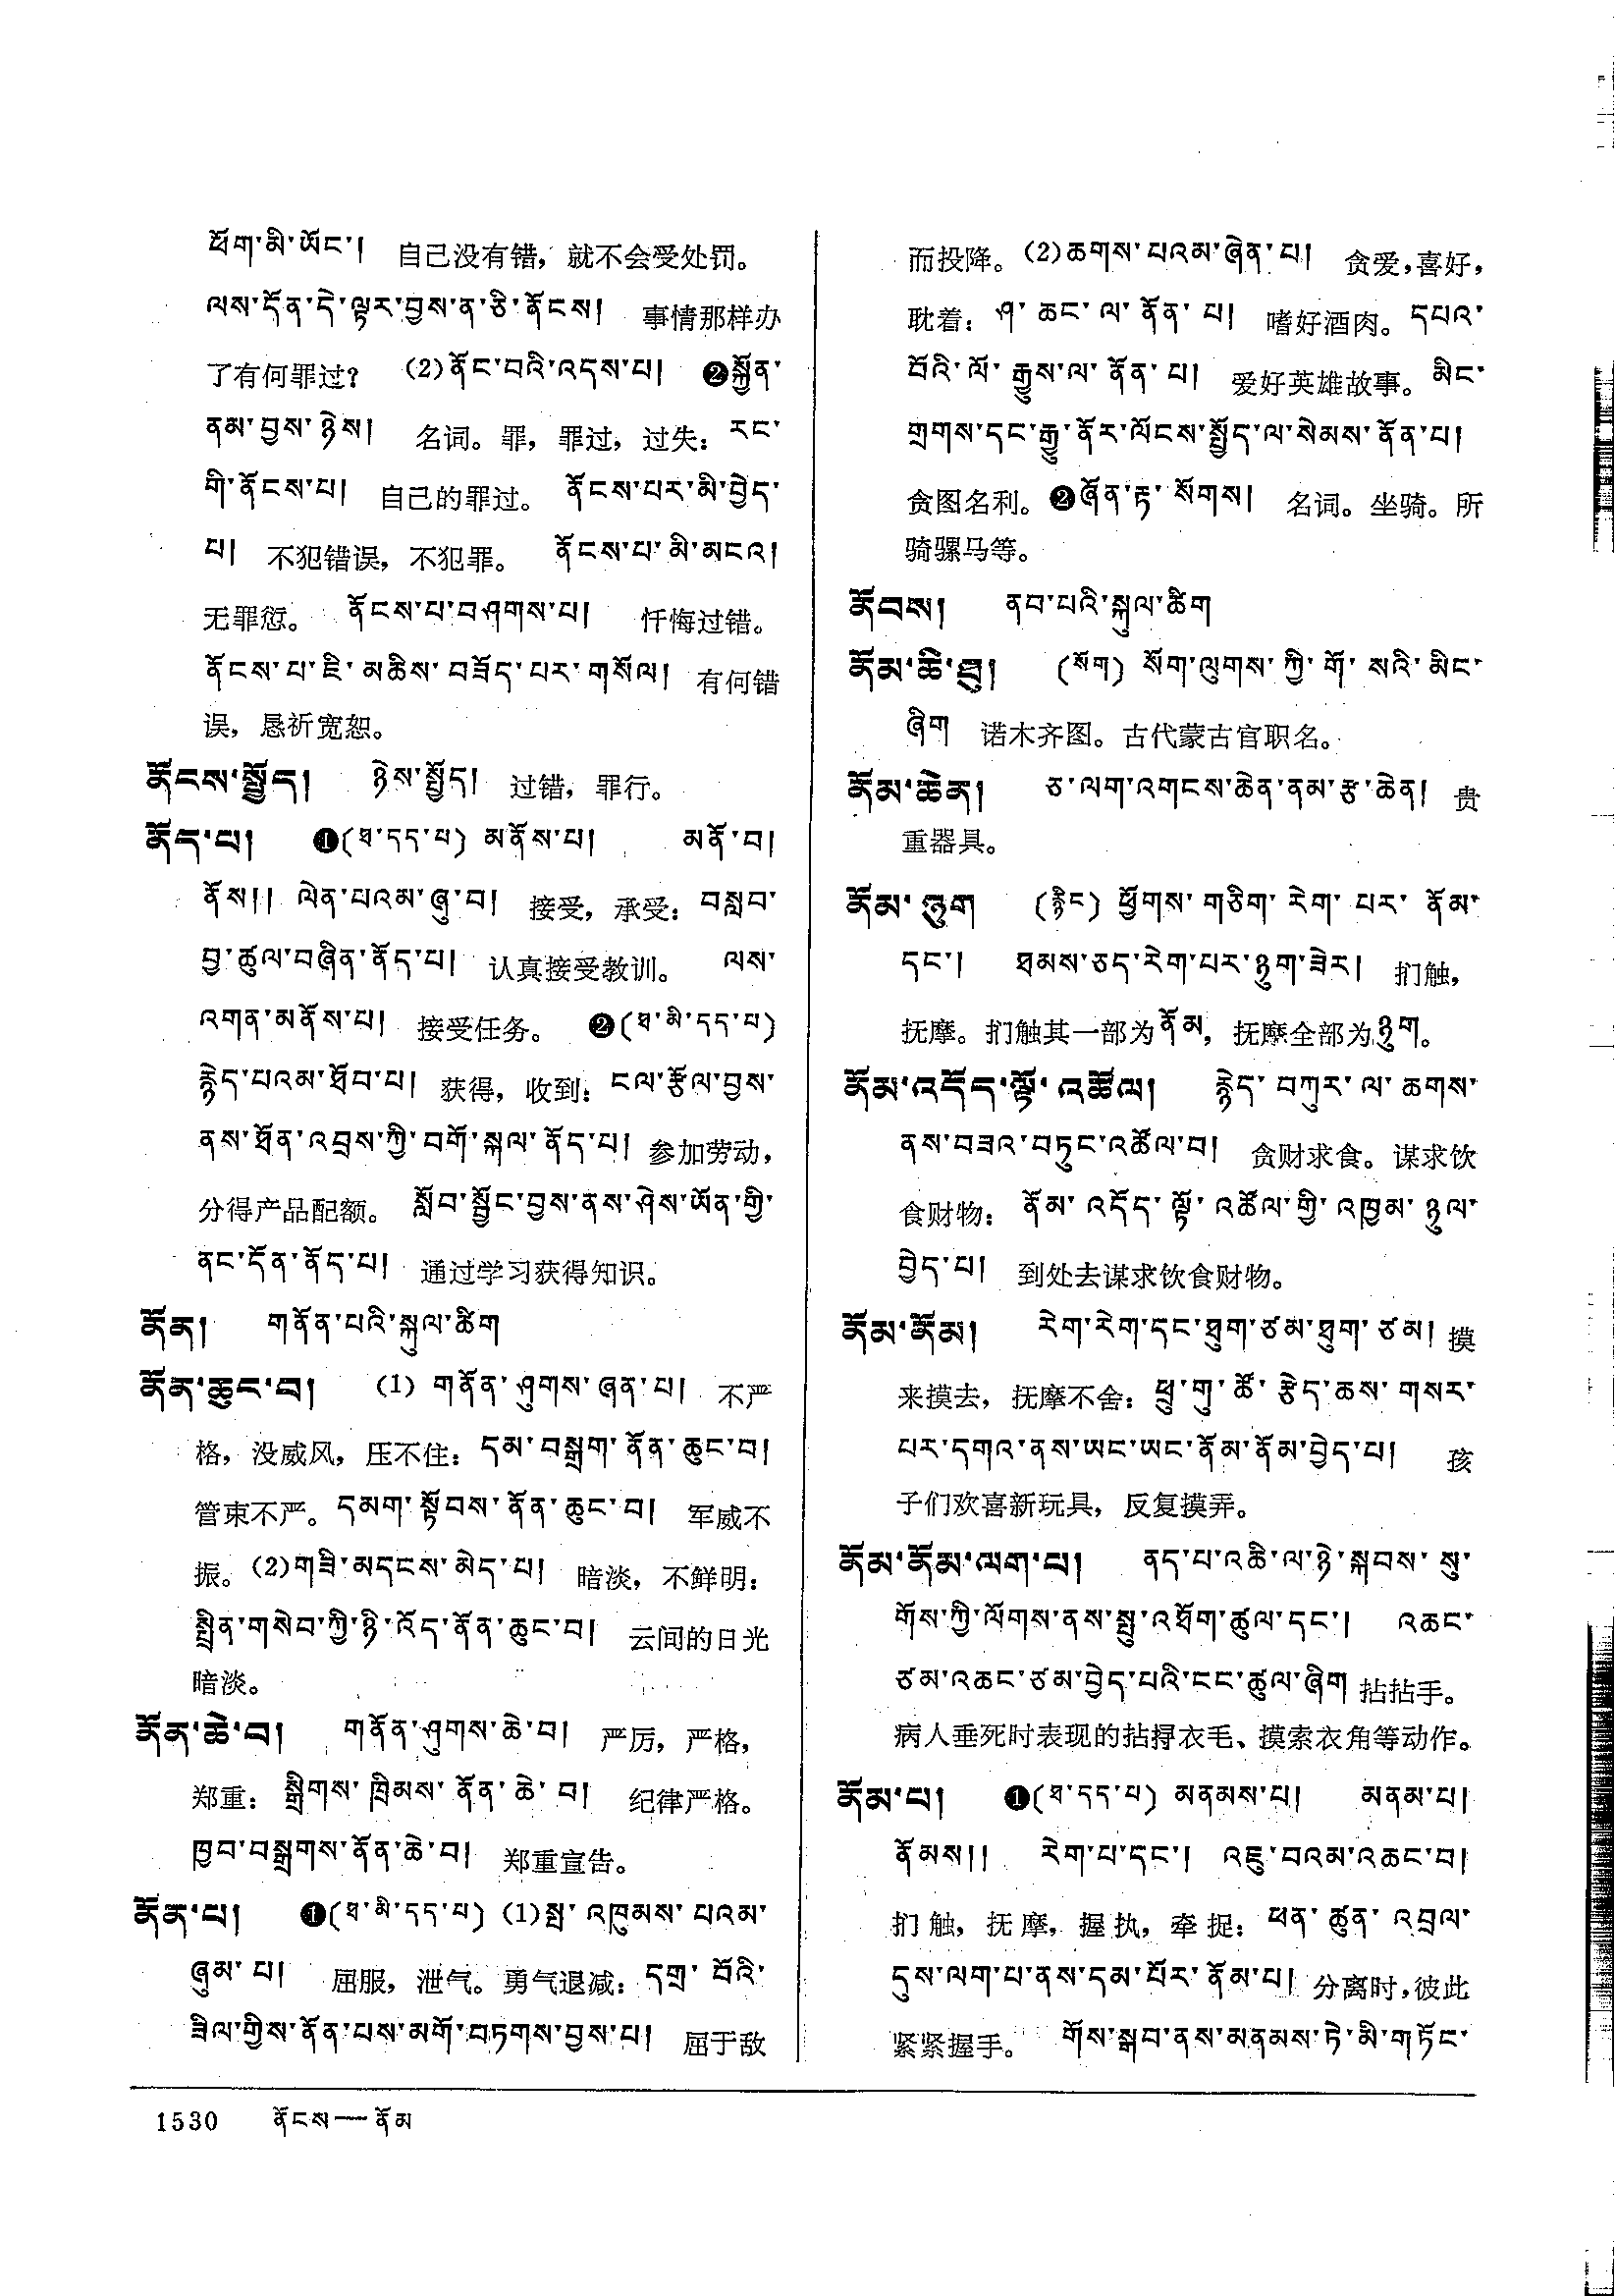 ཕོག་མི་ཡོང་། 自己没有错，就不会受处罚。
ལས་དོན་དེ་ལྟར་བྱས་ན་ཅི་ནོངས། 事情那样办
了有何罪过？ (2)ནོང་བའི་འདས་པ། ❷སྐྱོན་
ནམ་བྱས་ཉེས། 名词。罪，罪过，过失：རང་
གི་ནོངས་པ། 自己的罪过。 ནོངས་པར་མི་བྱེད་
པ། 不犯错误，不犯罪。 ནོངས་པ་མི་མངའ།
无罪愆。 ནོངས་པ་བཤགས་པ། 忏悔过错。
ནོངས་པ་ཇི་མཆིས་བཟོད་པར་གསོལ། 有何错
误，恳祈宽恕。
ནོངས་སྤྱོད། ཉེས་སྤྱོད། 过错，罪行。
ནོད་པ། ❶(ཐ་དད་པ) མནོས་པ། མནོ་བ།
ནོས།། ལེན་པའམ་ཞུ་བ། 接受，承受：བསླབ་
བྱ་ཚུལ་བཞིན་ནོད་པ། 认真接受教训。 ལས་
འགན་མནོས་པ། 接受任务。 ❷(ཐ་མི་དད་པ)
རྙེད་པའམ་ཐོབ་པ། 获得，收到：ངལ་རྩོལ་བྱས་
ནས་ཐོན་འབྲས་ཀྱི་བགོ་སྐལ་ནོད་པ། 参加劳动，
分得产品配额。 སློབ་སྦྱོང་བྱས་ནས་ཤེས་ཡོན་གྱི་
ནང་དོན་ནོད་པ། 通过学习获得知识。
ནོན། གནོན་པའི་སྐུལ་ཚིག
ནོན་ཆུང་བ། (1) གནོན་ཤུགས་ཞན་པ། 不严
格，没威风，压不住：དམ་བསྒྲག་ནོན་ཆུང་བ།
管束不严。དམག་སྟོབས་ནོན་ཆུང་བ། 军威不
振。(2)གཟི་མདངས་མེད་པ། 暗淡，不鲜明：
སྤྲིན་གསེབ་ཀྱི་ཉི་འོད་ནོན་ཆུང་བ། 云间的日光
暗淡。
ནོན་ཆེ་བ། གནོན་ཤུགས་ཆེ་བ། 严厉，严格，
郑重：སྒྲིགས་ཁྲིམས་ནོན་ཆེ་བ། 纪律严格。
ཁྱབ་བསྒྲགས་ནོན་ཆེ་བ། 郑重宣告。
ནོན་པ། ❶(ཐ་མི་དད་པ) (1)སྤ་འཁུམས་པའམ་
ཞུམ་པ། 屈服，泄气。勇气退减：དགྲ་བོའི་
ཟིལ་གྱིས་ནོན་པས་མགོ་བཏགས་བྱས་པ། 屈于敌
而投降。(2)ཆགས་པའམ་ཞེན་པ། 贪爱，喜好，
耽着：ཤ་ཆང་ལ་ནོན་པ། 嗜好酒肉。དཔའ་
བོའི་ལོ་རྒྱུས་ལ་ནོན་པ། 爱好英雄故事。མིང་
གྲགས་དང་རྒྱུ་ནོར་ལོངས་སྤྱོད་ལ་སེམས་ནོན་པ།
贪图名利。❷ཞོན་རྟ་སོགས། 名词。坐骑。所
骑骡马等。
ནོབས། ནབ་པའི་སྐུལ་ཚིག
ནོམ་ཆི་ཐུ། (སོག) སོག་ལུགས་ཀྱི་གོ་སའི་མིང་
ཞིག 诺木齐图。古代蒙古官职名。
ནོམ་ཆེན། ཅ་ལག་འགངས་ཆེན་ནམ་རྩ་ཆེན། 贵
重器具。
ནོམ་ཉུག (རྙིང) ཕྱོགས་གཅིག་རེག་པར་ནོམ་
དང་། ཐམས་ཅད་རེག་པར་ཉུག་ཟེར། 扪触，
抚摩。扪触其一部为ནོམ，抚摩全部为ཉུག。
ནོམ་འདོད་ལྟོ་འཚོལ། རྙེད་བཀུར་ལ་ཆགས་
ནས་བཟའ་བཏུང་འཚོལ་བ། 贪财求食。谋求饮
食财物：ནོམ་འདོད་ལྟོ་འཚོལ་གྱི་འཁྱམ་ཉུལ་
བྱེད་པ། 到处去谋求饮食财物。
ནོམ་ནོམ། རེག་རེག་དང་ཐུག་ཙམ་ཐུག་ཙམ། 摸
来摸去，抚摩不舍：ཕྲུ་གུ་ཚོ་རྩེད་ཆས་གསར་
པར་དགའ་ནས་ཡང་ཡང་ནོམ་ནོམ་བྱེད་པ། 孩
子们欢喜新玩具，反复摸弄。
ནོམ་ནོམ་ལག་པ། ནད་པ་འཆི་ལ་ཉེ་སྐབས་སུ་
གོས་ཀྱི་ལོགས་ནས་སྤུ་འཐོག་ཚུལ་དང་། འཆང་
ཙམ་འཆང་ཙམ་བྱེད་པའི་ངང་ཚུལ་ཞིག 拈拈手。
病人垂死时表现的拈挦衣毛、摸索衣角等动作。
ནོམ་པ། ❶(ཐ་དད་པ) མནམས་པ། མནམ་པ།
ནོམས།། རེག་པ་དང་། འཇུ་བའམ་འཆང་བ།
扪触，抚摩，握执，牵捉：ཕན་ཚུན་འབྲལ་
དུས་ལག་པ་ནས་དམ་པོར་ནོམ་པ། 分离时，彼此
紧紧握手。 གོས་སྒབ་ནས་མནམས་ཏེ་མི་གཏོང་
1530 ནོངས—ནོམ